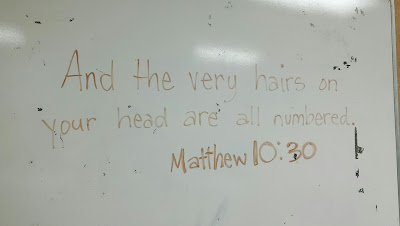 And the very hairs on
your head are all numbered.
Matthew 10:30